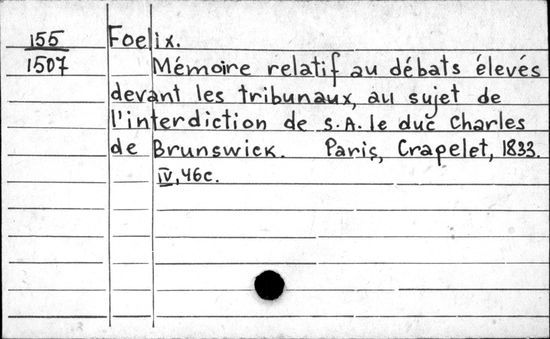 155 Foelix.
1507 Mémoire relatif au débats élevés
devant les tribunaux, au sujet de
l'interdiction de S.A. le duc Charles
de Brunswick. Paris, Crapelet, 1833.
IV, 46c.